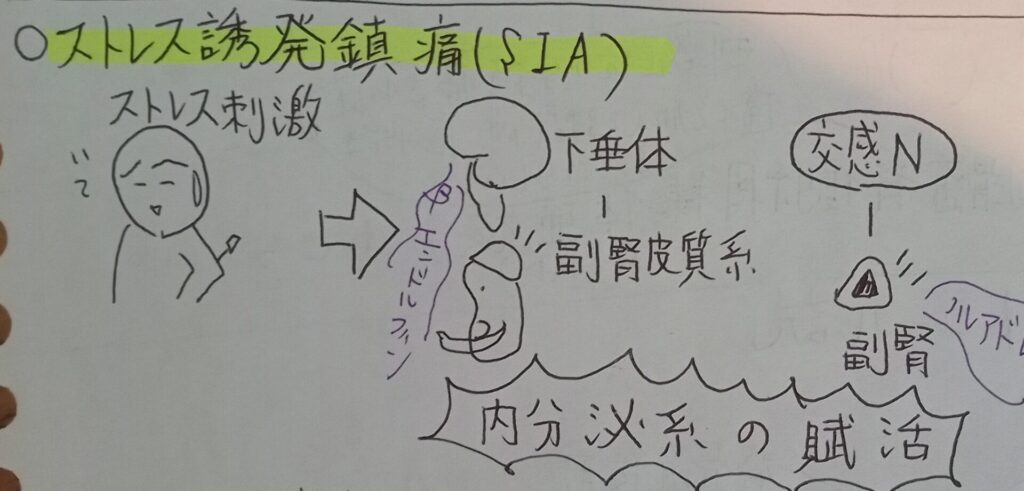 ○ストレス誘発鎮痛(SIA)
ストレス刺激
いて
下垂体
交感N
β
エンドルフィン
副腎皮質系
ノルアド
副腎
内分泌系の賦活